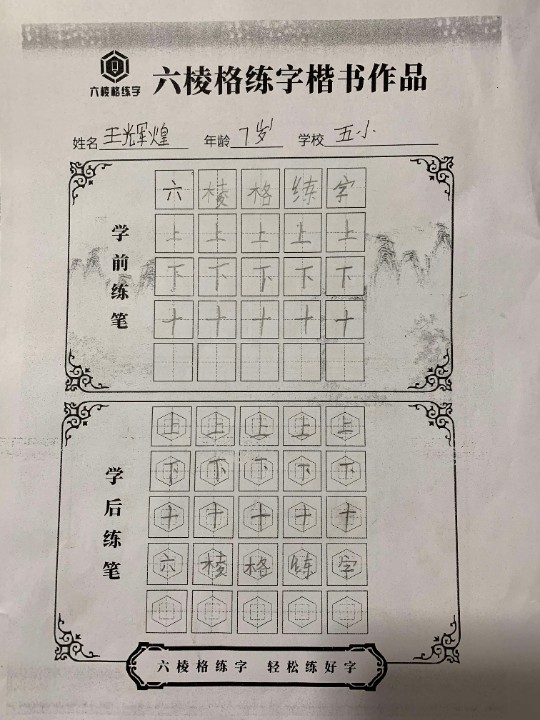 六棱格练字
六棱格练字楷书作品
姓名 王辉煌 年龄 7岁 学校 五小
学前练笔
六 棱 格 练 字
上 上 上 上 上
下 下 下 下 下
十 十 十 十 十
学后练笔
上 上 上 上 上
下 下 下 下 下
十 十 十 十 十
六 棱 格 练 字
六棱格练字 轻松练好字